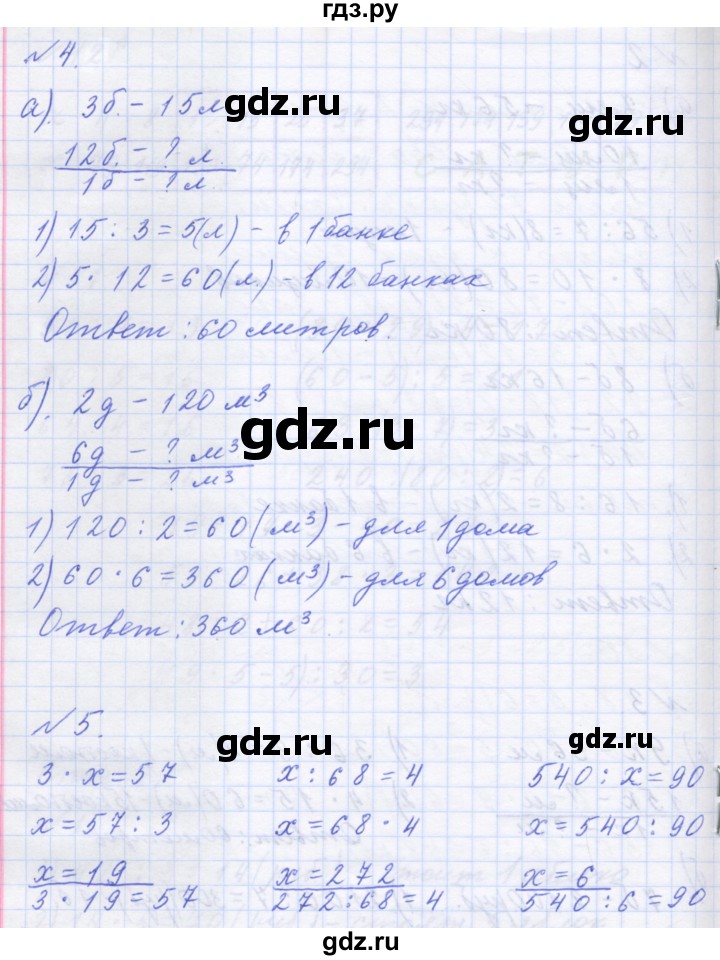 гдз.ру
№4.
а). 3б. – 15 л
gdz.ru
gdz.ru
12б. – ? л.
1б – ? л.
1) 15 : 3 = 5(л) – в 1 банке
2) 5 · 12 = 60(л) – в 12 банках
Ответ : 60 литров.
б). 2д – 120 м³
gdz.ru
6д – ? м³
1д – ? м³
1) 120 : 2 = 60(м³) – для 1 дома
gdz.ru
2) 60 · 6 = 360(м³) – для 6 домов
Ответ : 360 м³
№5.
gdz.ru
gdz.ru
3 · x = 57 x : 68 = 4 540 : x = 90
x = 57 : 3 x = 68 · 4 x = 540 : 90
x = 19 x = 272 x = 6
3 · 19 = 57 272 : 68 = 4 540 : 6 = 90
gdz.ru